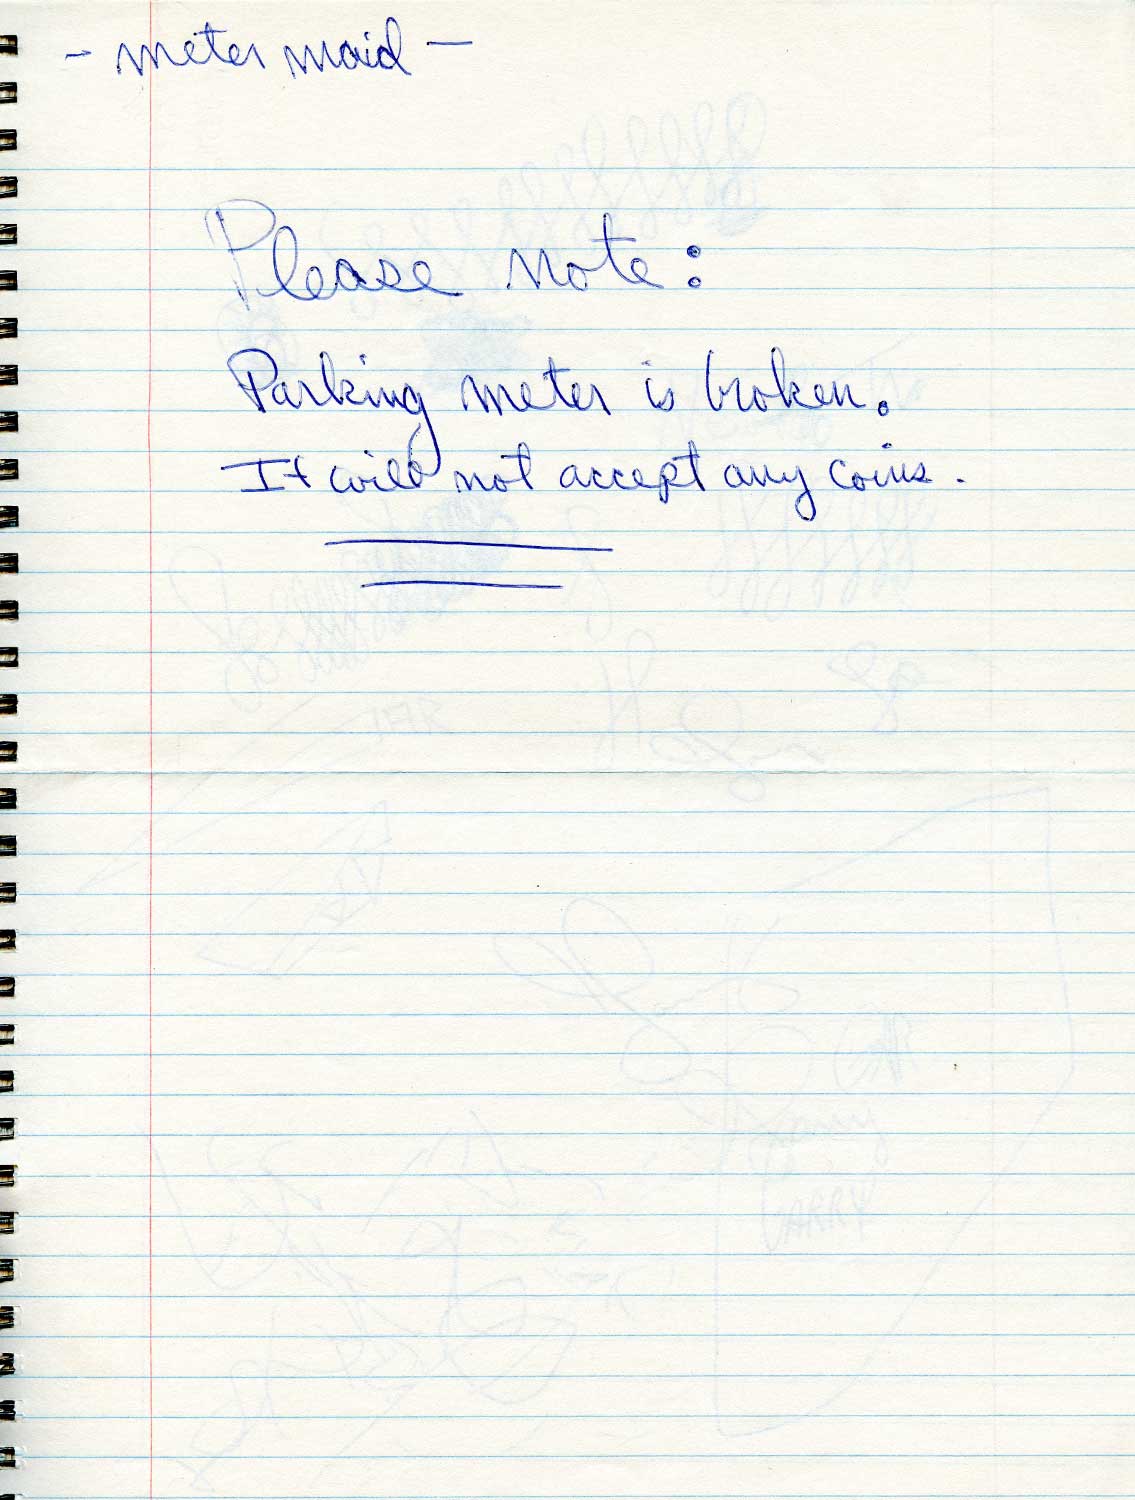 - meter maid -
Please note:
Parking meter is broken.
It will not accept any coins.